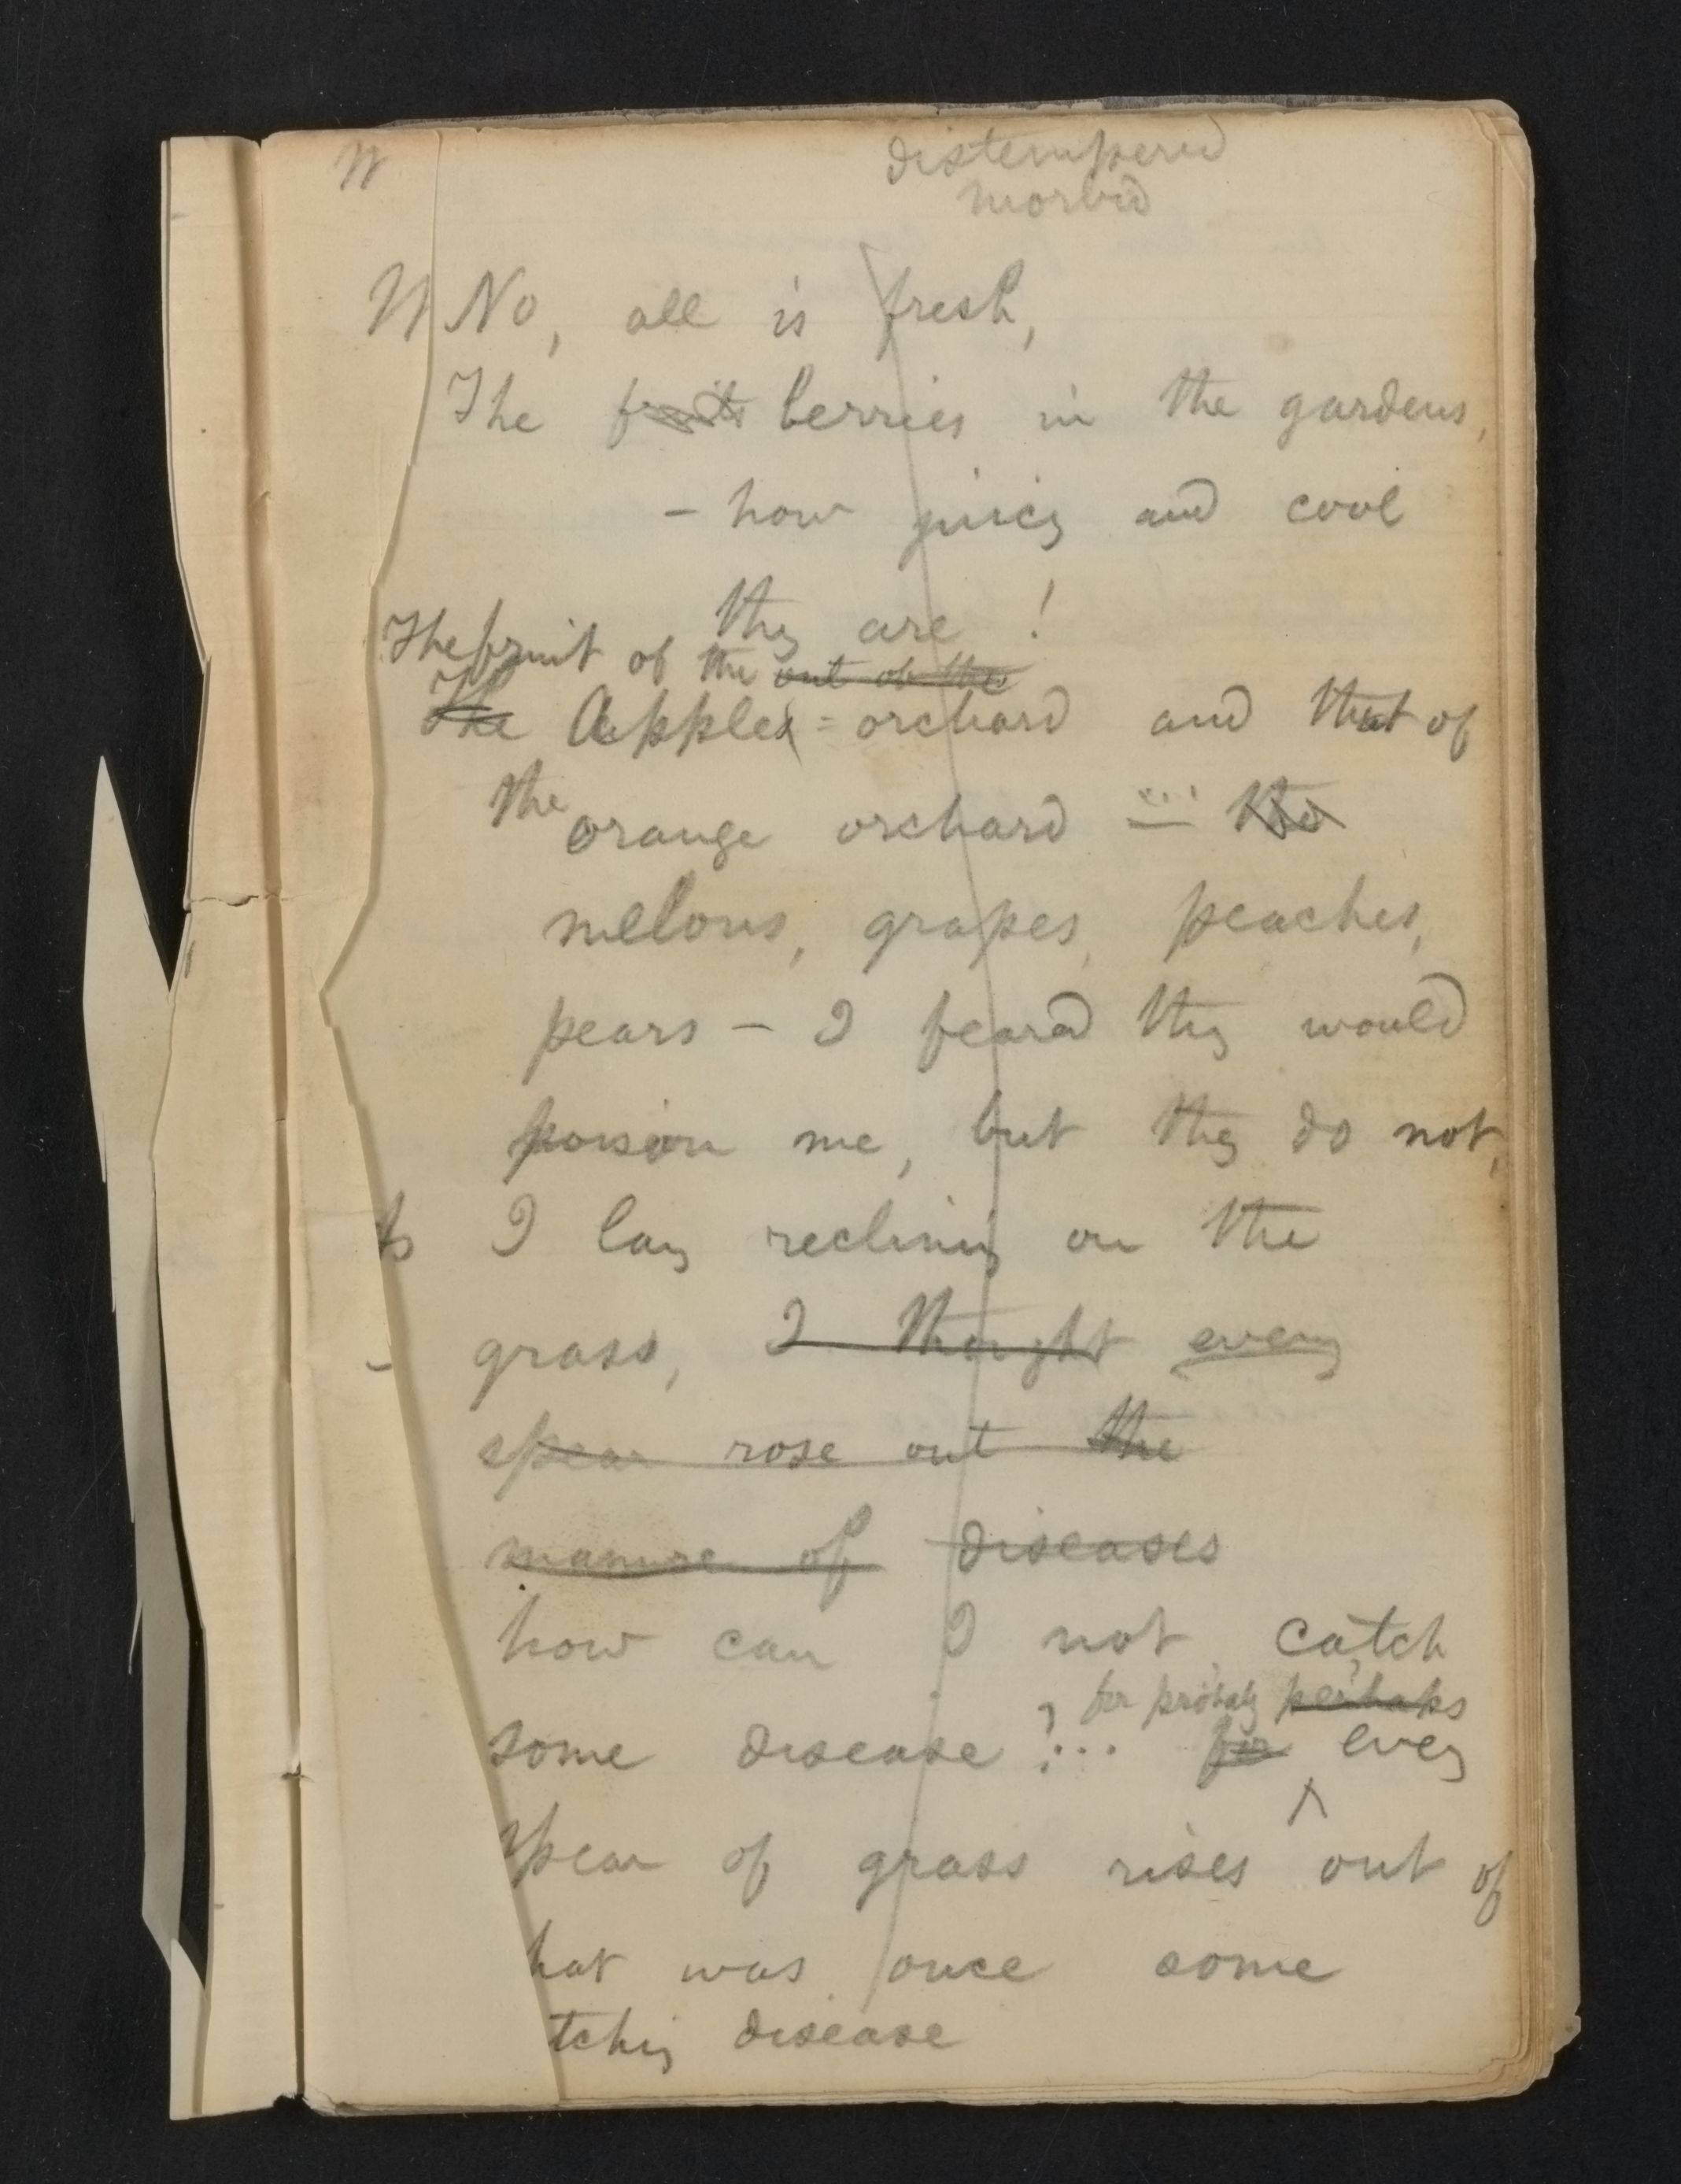 distempered
morbid
N No, all is fresh,
The fruits berries in the gardens,
– how juicy and cool
they are !
The fruit of the out of the
The Apple = orchard and that of
the orange orchard – ... the
melons, grapes, peaches,
pears – I feared they would
poison me, but they do not,
I lay reclining on the
grass, I thought every
spear rose out the
manure of diseases
how can I not catch
for probably perhaps
some disease ? ... for every
spear of grass rises out of
hat was once some
tching disease